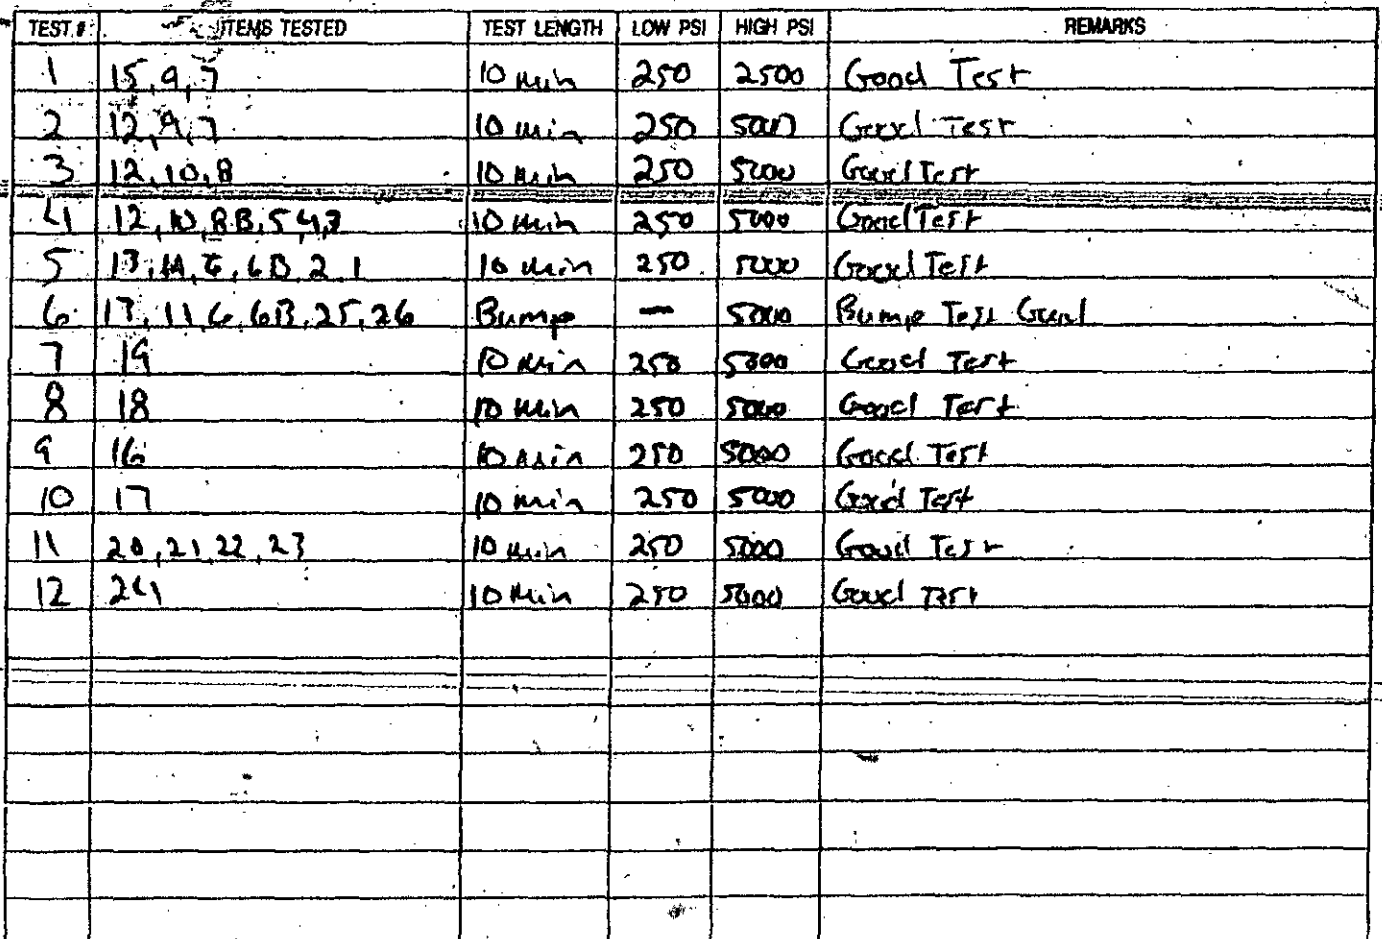 TEST # ITEMS TESTED TEST LENGTH LOW PSI HIGH PSI REMARKS
1 15, 9, 7 10 min 250 2500 Good Test
2 12, 9, 7 10 min 250 5000 Good Test
3 12, 10, 8 10 min 250 5000 Good Test
4 12, 10, 8B, 5 4, 3 10 min 250 5000 Good Test
5 13, 6B, 2, 1 10 min 250 5000 Good Test
6 13, 11, 6, 6B, 25, 26 Bump — 5000 Bump Test Good
7 19 10 min 250 5000 Good Test
8 18 10 min 250 5000 Good Test
9 16 10 min 250 5000 Good Test
10 17 10 min 250 5000 Good Test
11 20, 21, 22, 23 10 min 250 5000 Good Test
12 24 10 min 250 5000 Good Test